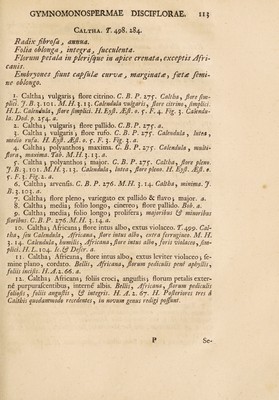 GYMNOMONOSPERMAE DISCIFLORAE. 113
CALTHA. T. 498. 284.
Radix fibrosa, annua.
Folia oblonga, integra, succulenta.
Florum petala in plerisque in apice crenata, exceptis Afri-
canis.
Embryones fiunt capsulæ curvæ, marginatæ, fætæ semi-
ne oblongo.
1. Caltha; vulgaris; flore citrino. C. B. P. 275. Caltha, flore sim-
plici. J. B. 3. 101. M. H. 3. 13. Calendula vulgaris, flore citrino, simplici.
H. L. Calendula, flore simplici. H. Eyst. Æst. o. 5. F. 4. Fig. 3. Calendu-
la. Dod. p. 254. a.
2. Caltha; vulgaris; flore pallido. C. B. P. 275. a.
3. Caltha; vulgaris; flore rufo. C. B. P. 275. Calendula, lutea,
medio rufa. H. Eyst. Æst. o. 5. F. 3. Fig. 3. a.
4. Caltha; polyanthos; maxima. C. B. P. 275. Calendula, multi-
flora, maxima. Tab. M. H. 3. 13. a.
5. Caltha; polyanthos; major. C. B. P. 275. Caltha, flore pleno.
J. B. 3. 101. M. H. 3. 13. Calendula, lutea, flore pleno. H. Eyst. Æst. o.
5. F. 3. Fig. 2. a.
6. Caltha; arvensis. C. B. P. 276. M. H. 3. 14. Caltha, minima. J.
B. 3. 103. a.
7. Caltha; flore pleno, variegato ex pallido & flavo; major. a.
8. Caltha; media; folio longo, cinereo; flore pallido. Bob. a.
9. Caltha; media; folio longo; prolifera; majoribus & minoribus
floribus. C. B. P. 276. M. H. 3. 14. a.
10. Caltha; Africana; flore intus albo, extus violaceo. T. 499. Cal-
tha, seu Calendula, Africana, flore intus albo, extra ferrugineo. M. H.
3. 14. Calendula, humilis, Africana, flore intus albo, foris violaceo, sim-
plici. H. L. 104. Ic. & Descr. a.
11. Caltha; Africana, flore intus albo, extus leviter violaceo; se-
mine plano, cordato. Bellis, Africana, florum pediculi pene aphyllis,
foliis incisis. H. A. 2. 66. a.
12. Caltha; Africana; foliis croci, angustis; florum petalis exter-
ne purpurascentibus, interne albis. Bellis, Africana, florum pediculis
foliosis, foliis angustis, & integris. H. A. 2. 67. H. Posteriores tres à
Calthis quodammodo recedentes, in novum genus redigi possunt.
P Se-